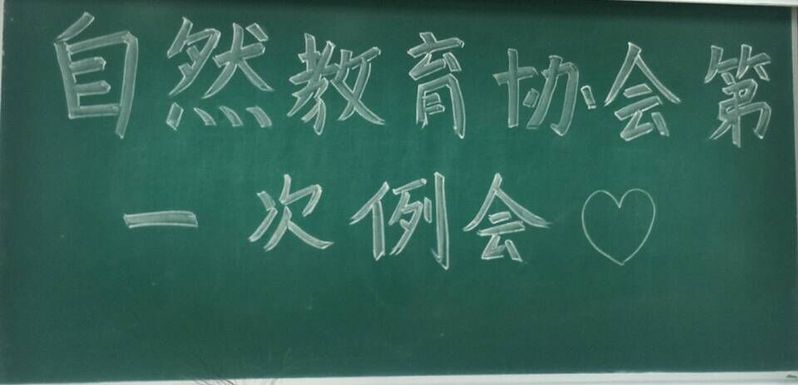 自然教育协会第
一次例会♡